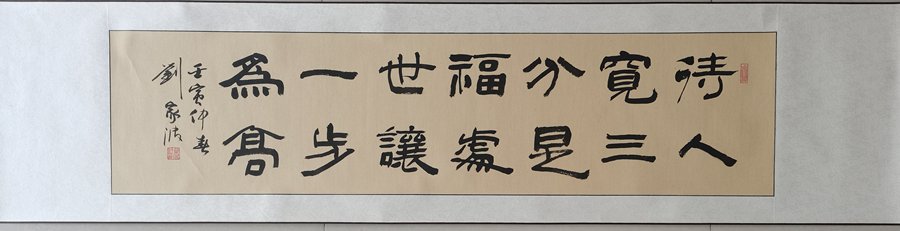 待人
寛三
分是
福處
世讓
一步
為高
壬寅仲春
劉家